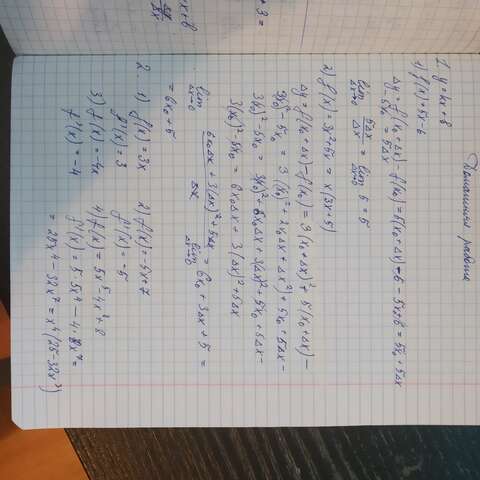 Домашняя работа
1. y = kx + b
1) f(x) = 5x - 6
Δy = f(x₀ + Δx) - f(x₀) = 5(x₀ + Δx) - 6 - 5x + 6 = 5x₀ + 5Δx
- 5x₀ = 5Δx
lim Δx→0 5Δx/Δx = lim Δx→0 5 = 5
2) f(x) = 3x² + 5x = x(3x + 5)
Δy = f(x₀ + Δx) - f(x₀) = 3(x₀ + Δx)² + 5(x₀ + Δx) -
3(x₀)² - 5x₀ = 3(x₀² + 2x₀Δx + Δx²) + 5x₀ + 5Δx -
3(x₀)² - 5x₀ = 3(x₀)² + 6x₀Δx + 3(Δx)² + 5x₀ + 5Δx -
3(x₀)² - 5x₀ = 6x₀Δx + 3(Δx)² + 5Δx
lim Δx→0 6x₀Δx + 3(Δx)² + 5Δx/Δx = lim Δx→0 6x₀ + 3Δx + 5 =
= 6x₀ + 5
2. 1) f(x) = 3x 2) f(x) = -5x + 7
f'(x) = 3 f'(x) = -5
3) f(x) = -4x 4) f(x) = 5x⁵ - 4x⁸ + 8
f'(x) = -4 f'(x) = 5·5x⁴ - 4·8x⁷ =
= 25x⁴ - 32x⁷ = x⁴(25 - 32x³)
+ 3 =
x + b
Δy/Δx